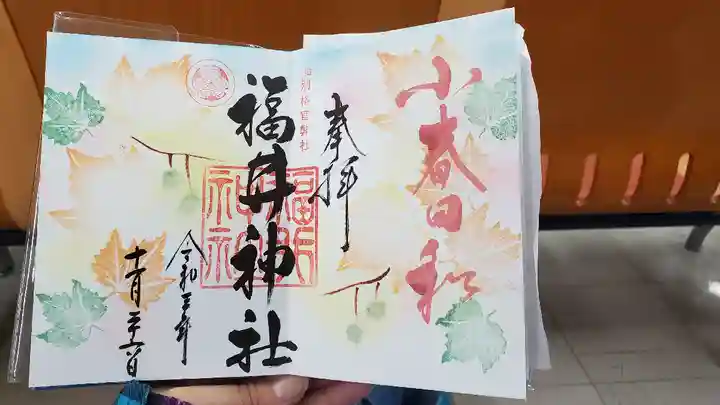 小春日和
奉拝
旧別格官幣社
福井神社
福井神社
令和三年
十一月二十一日